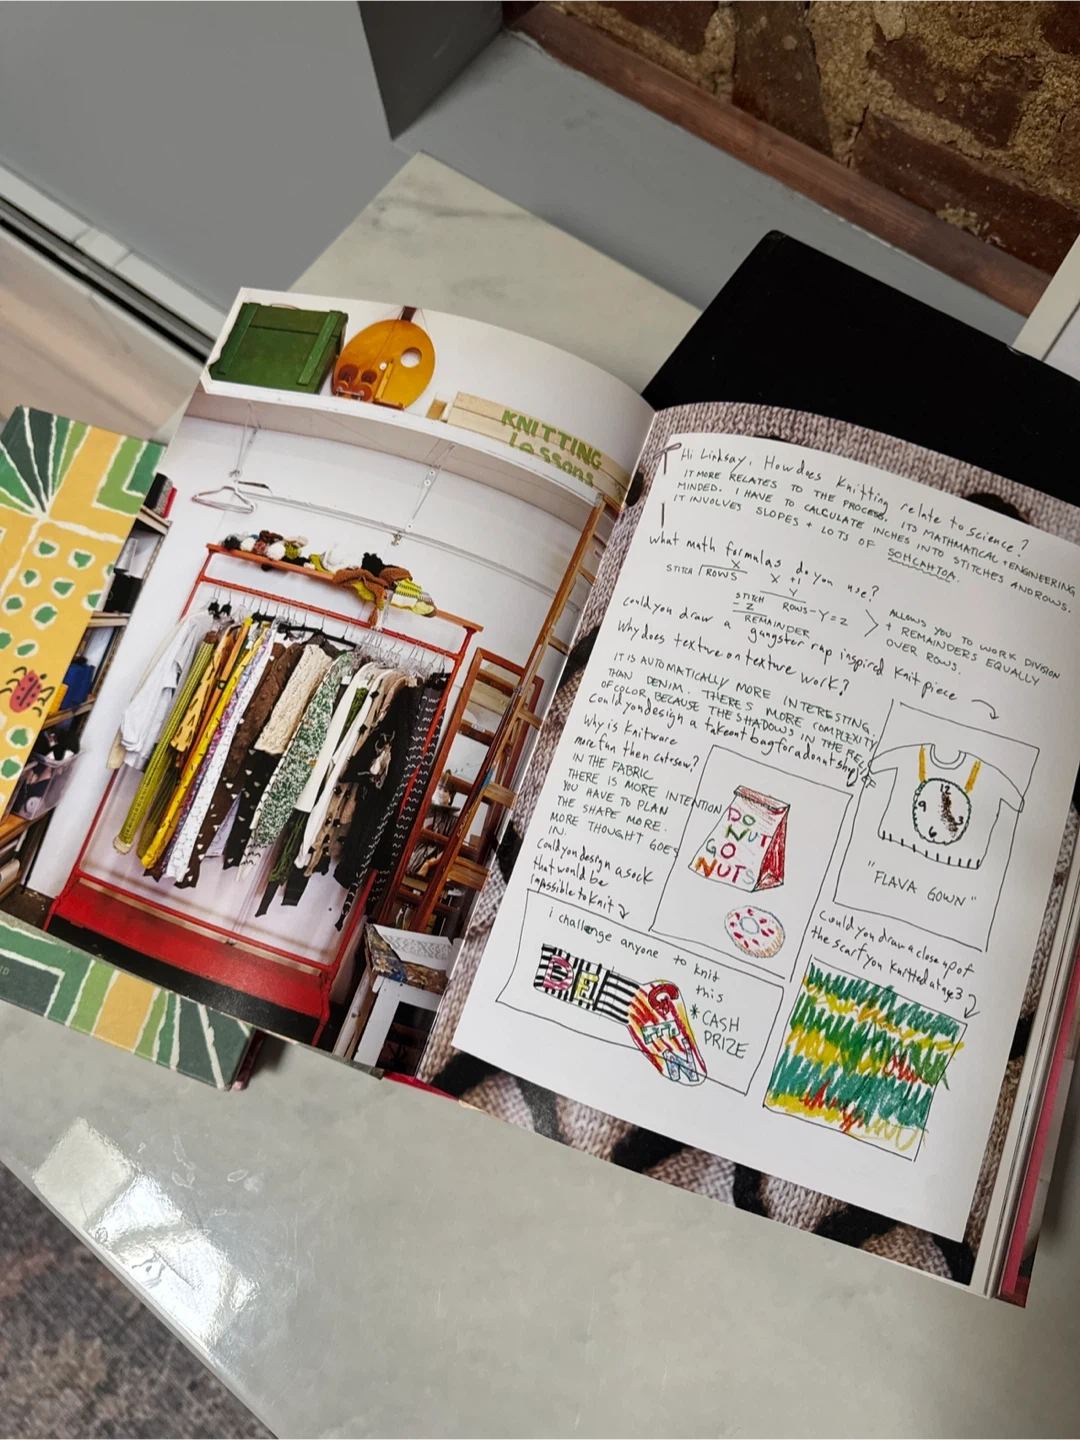 KNITTING
Lessons
Hi Lindsay, How does Knitting relate to science?
IT MORE RELATES TO THE PROCESS. ITS MATHMATICAL + ENGINEERING
MINDED. I HAVE TO CALCULATE INCHES INTO STITCHES AND ROWS.
IT INVOLVES SLOPES + LOTS OF SOHCAHTOA.
what math formulas do you use?
X X +1
STITCH ROWS Y
STITCH ROWS-Y=Z
-Z
REMAINDER
ALLOWS YOU TO WORK DIVISION
+ REMAINDERS EQUALLY
OVER ROWS.
could you draw a gangster rap inspired knit piece
Why does texture on texture work?
IT IS AUTOMATICALLY MORE INTERESTING
THAN DENIM. THERE'S MORE COMPLEXITY
OF COLOR, BECAUSE THE SHADOWS IN THE RELIEF
Could you design a takeout bag for a donut shop
Why is Knitware
more fun then cut+sew?
IN THE FABRIC
THERE IS MORE INTENTION
YOU HAVE TO PLAN
THE SHAPE MORE.
MORE THOUGHT GOES
IN.
DO
NUT
GO
NUTS
12
9
6
"FLAVA GOWN"
Could you design a sock
that would be
impossible to knit
i challenge anyone to knit
this
*CASH
PRIZE
DEF
Could you draw a close up of
the scarf you knitted at age 3